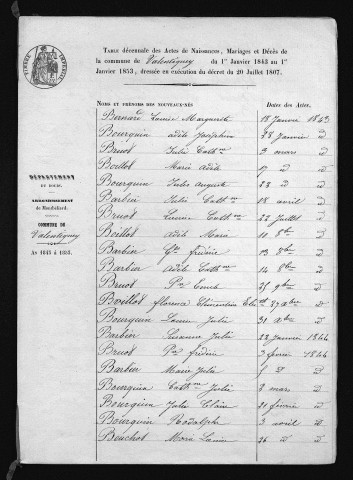 TIMBRE IMPERIAL
Table décennale des Actes de Naissances, Mariages et Décès de
la commune de Valentigney du 1er Janvier 1843 au 1er
Janvier 1853, dressée en exécution du décret du 20 Juillet 1807.
DÉPARTEMENT
DU DOUBS.
ARRONDISSEMENT
de Montbéliard.
COMMUNE DE
Valentigney
An 1843 à 1853.
Noms et prénoms des nouveaux-nés Dates des Actes.
Bernard Louise Marguerite 18 Janvier 1843
Bourquin Adèle Joséphine 28 Janvier d
Bruot Julie Cathne 3 mars d
Boillot Marie Adèle 17 d d
Bourquin Jules Auguste 23 d d
Barbier Julie Cathne 18 avril d
Bruot Louise Cathne 22 Juillet d
Boillot Adèle Marie 10 8bre d
Barbier Gge fréderic 13 8bre d
Barbier Adèle Cathne 14 8bre d
Bruot Pre 25 9bre d
Boillot florence Clementine 27 Xbre d
Bourquin Louise Julie 31 Xbre d
Barbier Suzanne Julie 22 Janvier 1844
Bruot Pre fréderic 3 février 1844
Barbier Marie Julie 5 d d
Bourquin Cathne Julie 2 mars d
Bourquin Jules 21 février d
Bourquin Rodolphe 3 avril d
Beuchot Marie Louise 26 d d